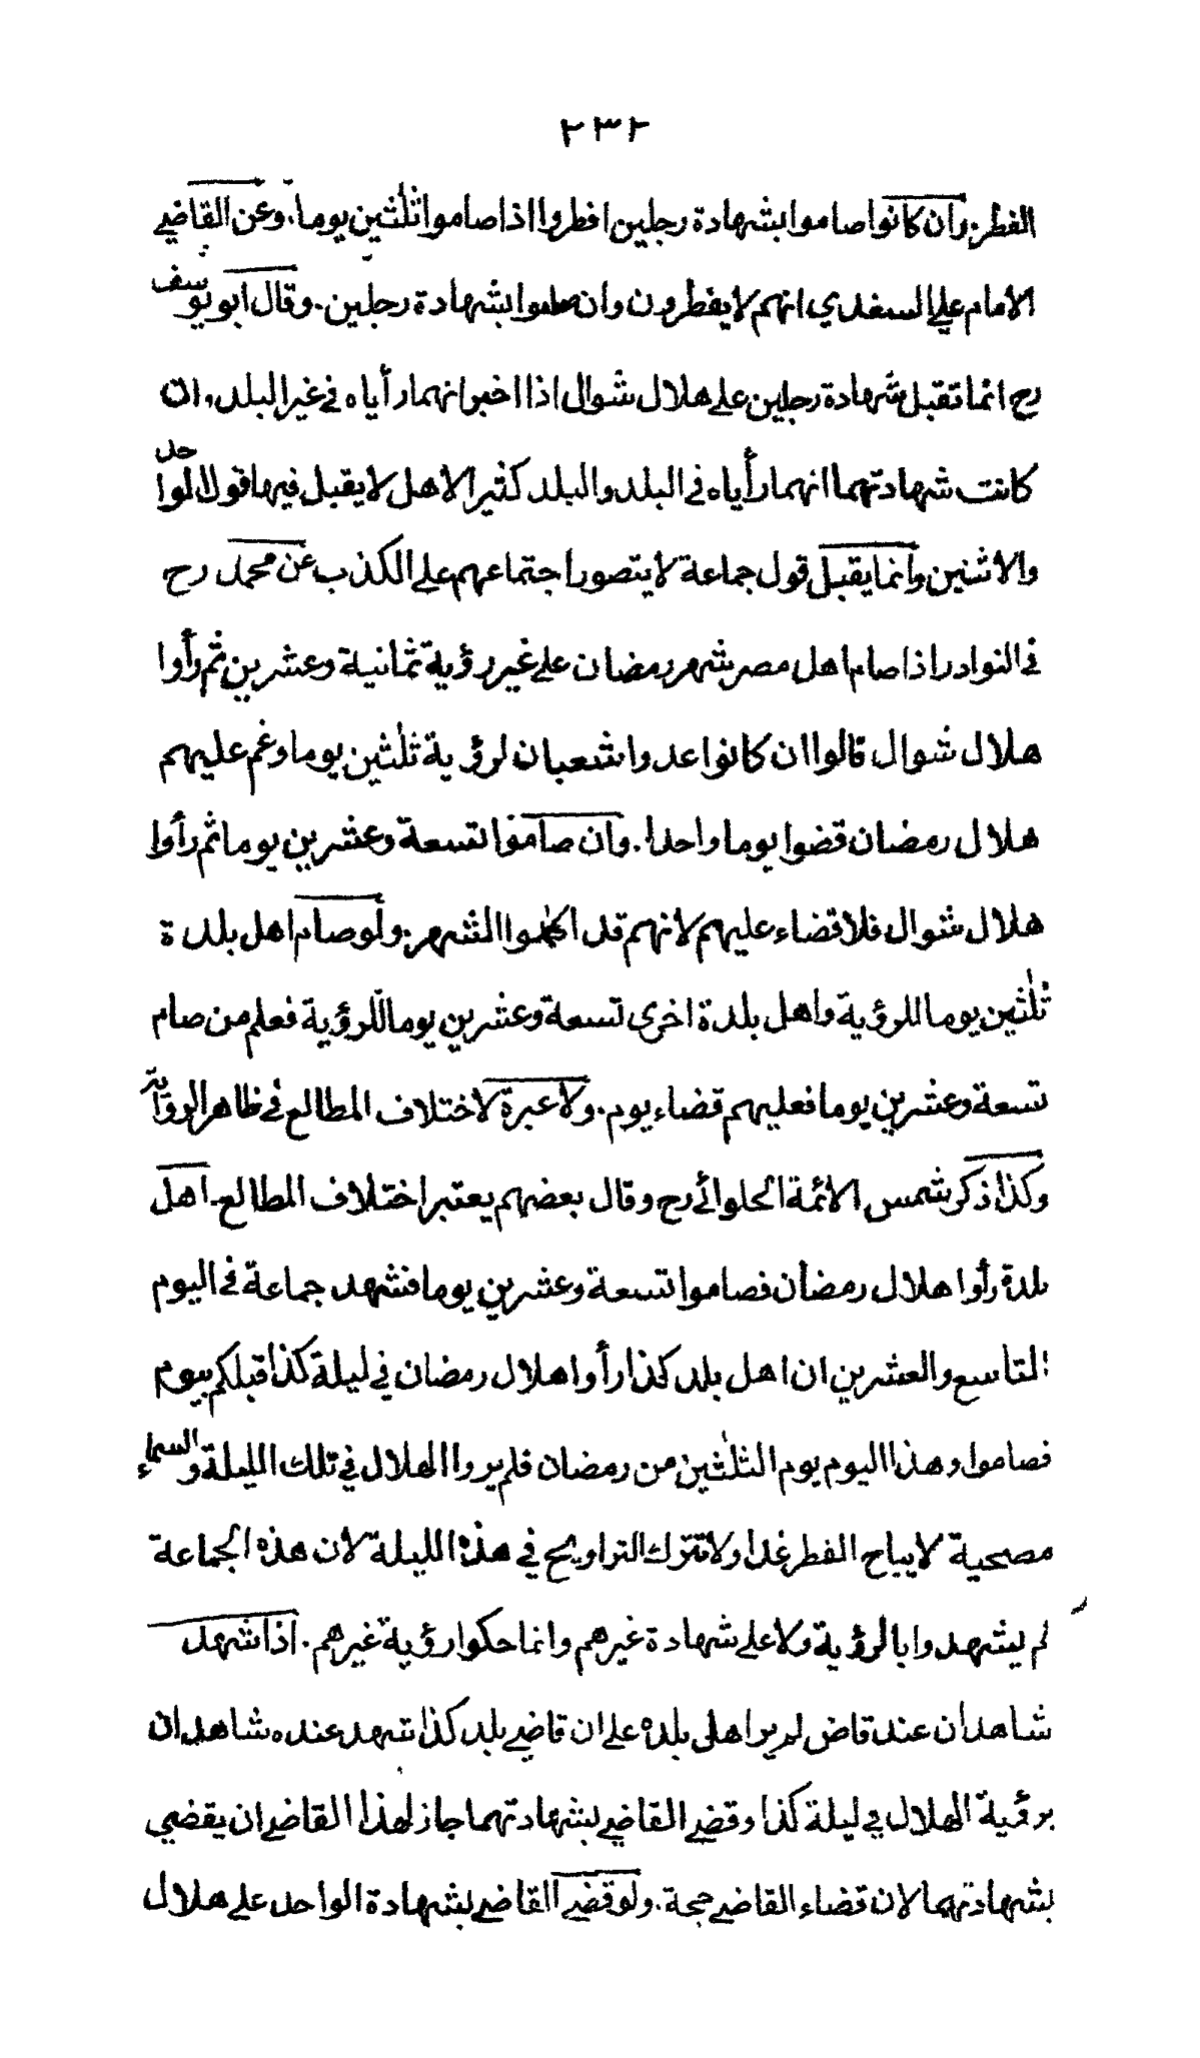 ٢٣٢
الفطر. وان كانوا صاموا بشهادة رجلين افطروا اذا صاموا ثلثين يوما. وعن القاضي
الامام علي السغدي انهم لا يفطرون وان صاموا بشهادة رجلين. وقال ابو يوسف
رح انما تقبل شهادة رجلين على هلال شوال اذا اخبرا انهما رأياه في غير البلد، ان
كانت شهادتهما انهما رأياه في البلد والبلد كثير الاهل لا يقبل فيها قول الواحد
والاثنين وانما يقبل قول جماعة لا يتصور اجتماعهم على الكذب عن محمد رح
في النوادر اذا صام اهل مصر شهر رمضان على غير رؤية ثمانية وعشرين ثم رأوا
هلال شوال قالوا ان كانوا عدوا شعبان لرؤية ثلثين يوما وغم عليهم
هلال رمضان قضوا يوما واحدا. وان صاموا تسعة وعشرين يوما ثم رأوا
هلال شوال فلا قضاء عليهم لانهم قد اكملوا الشهر. ولو صام اهل بلدة
ثلثين يوما للرؤية واهل بلدة اخرى تسعة وعشرين يوما للرؤية فعلم من صام
تسعة وعشرين يوما فعليهم قضاء يوم. ولا عبرة لاختلاف المطالع في ظاهر الرواية
وكذا ذكر شمس الائمة الحلوائي رح وقال بعضهم يعتبر اختلاف المطالع. اهل
بلدة رأوا هلال رمضان فصاموا تسعة وعشرين يوما فشهد جماعة في اليوم
التاسع والعشرين ان اهل بلد كذا رأوا هلال رمضان في ليلة كذا قبلكم بيوم
فصاموا وهذا اليوم يوم الثلثين من رمضان فلم يروا الهلال في تلك الليلة والسماء
مصحية لا يباح الفطر غدا ولا تترك التراويح في هذه الليلة لان هذه الجماعة
لم يشهدوا بالرؤية ولا على شهادة غيرهم وانما حكوا رؤية غيرهم. اذا شهد
شاهدان عند قاض لم ير اهل بلده على ان قاضي بلد كذا شهد عنده شاهدان
برؤية الهلال في ليلة كذا وقضى القاضي بشهادتهما جاز لهذا القاضي ان يقضي
بشهادتهما لان قضاء القاضي حجة. ولو قضى القاضي بشهادة الواحد على هلال